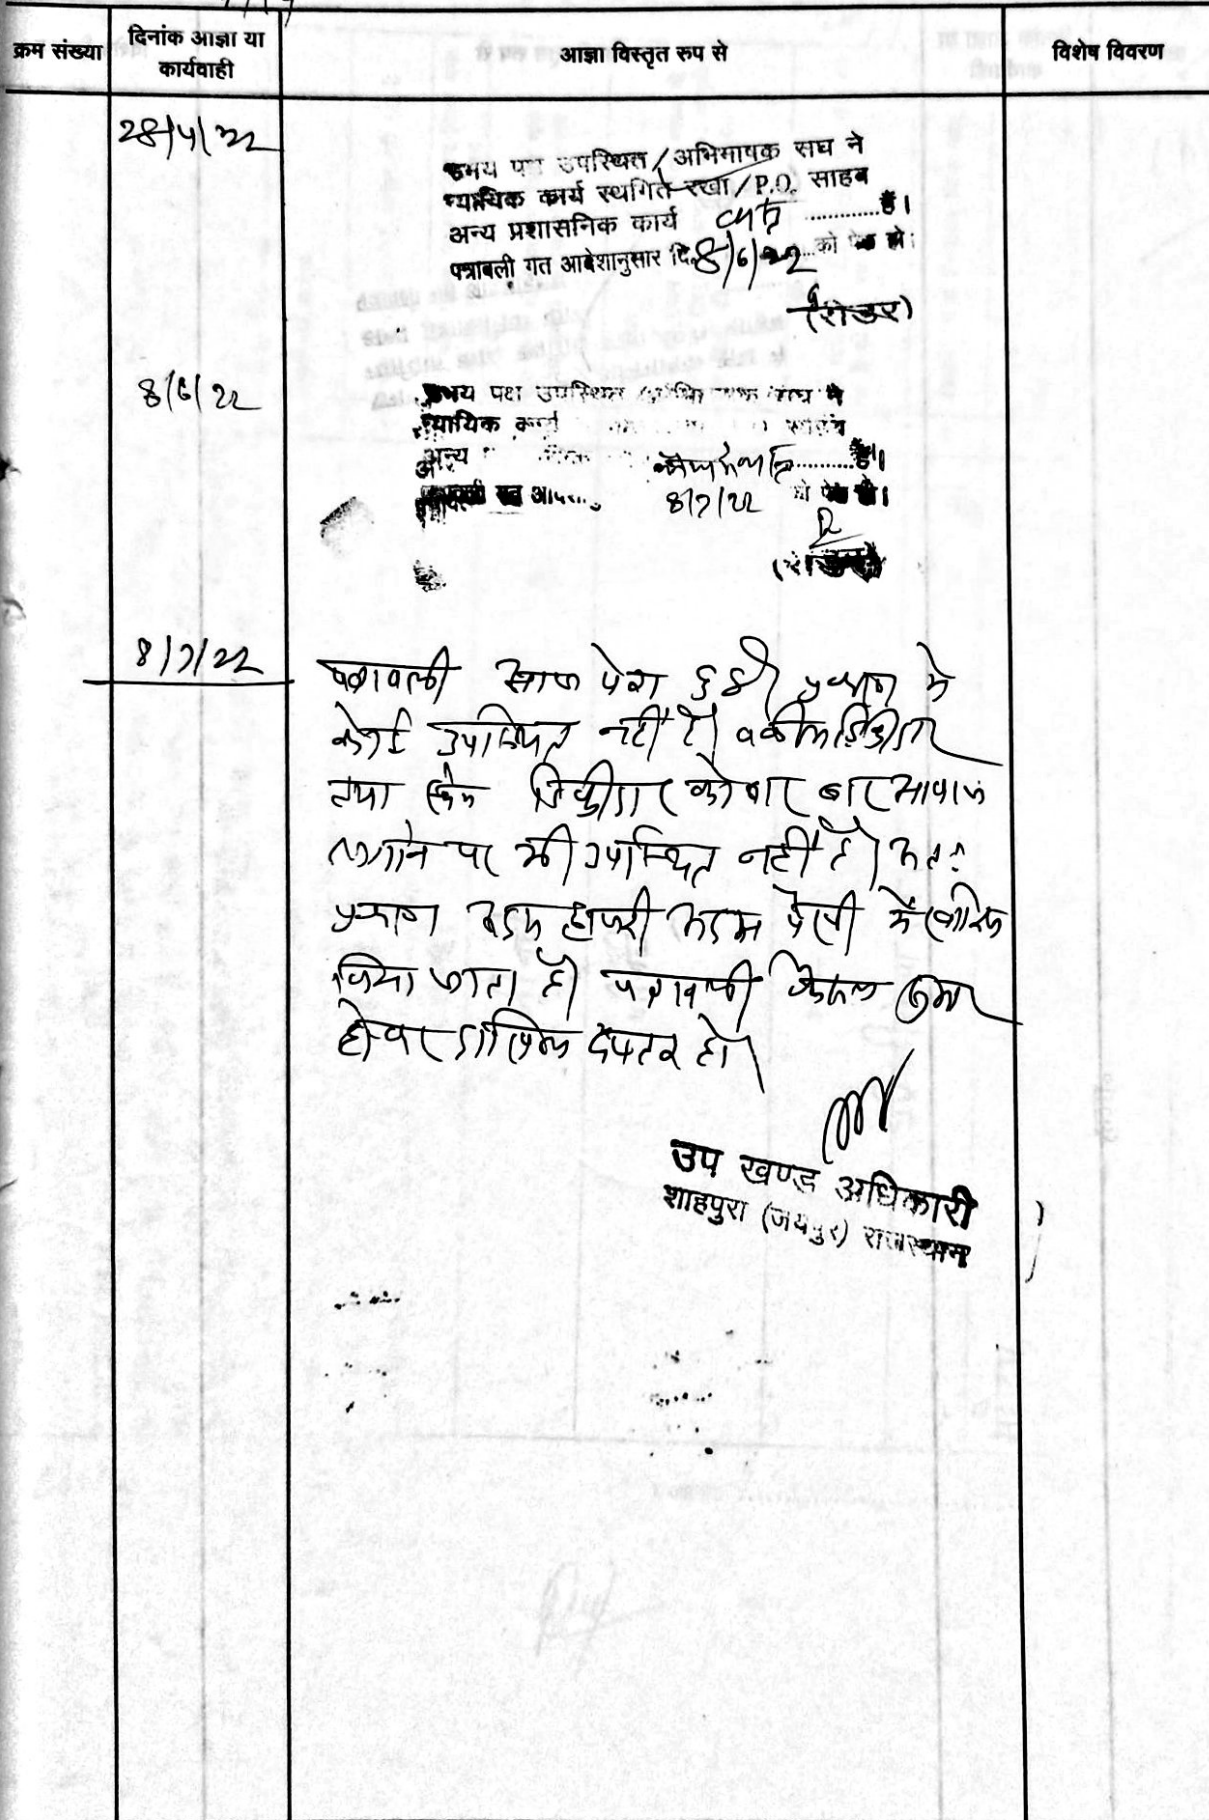 क्रम संख्या
दिनांक आज्ञा या
कार्यवाही
आज्ञा विस्तृत रूप से
विशेष विवरण
उभय पक्ष उपस्थित / अभिभाषक संघ ने
न्यायिक कार्य स्थगित रखा / P.O. साहब
अन्य प्रशासनिक कार्य ............हैं।
पत्रावली गत आदेशानुसार दि. 8/6/22 को पेश हो।
(रीडर)
8/6/22
उभय पक्ष उपस्थित संघ ने
न्यायिक कार्य
अन्य ............हैं।
8/7/22 को पेश हो।
8/7/22
पत्रावली आज पेश हुई। प्रकरण मे
कोई उपस्थित नहीं है। वकील डिक्रीदार
तथा डिक्रीदार को बार बार आवाज
लगाने पर भी उपस्थित नहीं है। अतः
प्रकरण अदम हाजरी अदम पैरवी में खारिज
किया जाता है। पत्रावली फैसल शुमार
होकर दाखिल दफ्तर हो।
उप खण्ड अधिकारी
शाहपुरा (जयपुर) राजस्थान